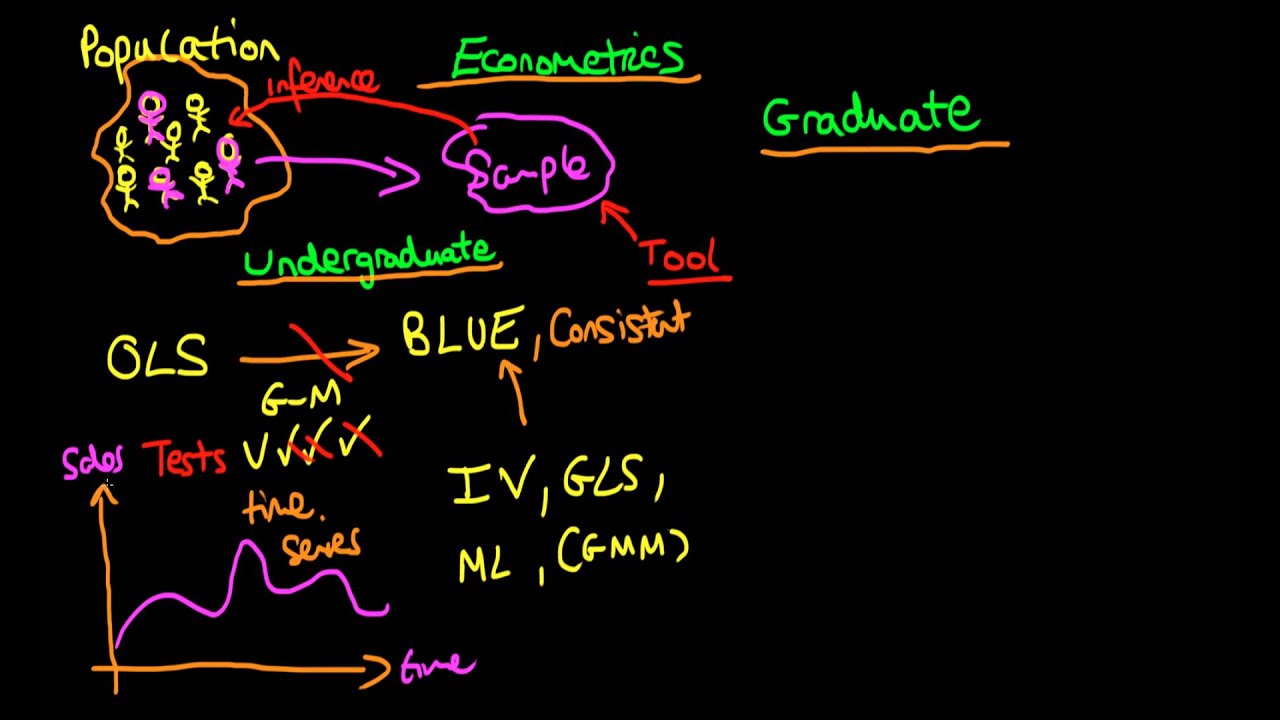 Population
Econometrics
inference
Graduate
Sample
Undergraduate
Tool
OLS
BLUE, Consistent
G-M
Sales Tests
IV, GLS,
time
series
ML, (GMM)
time